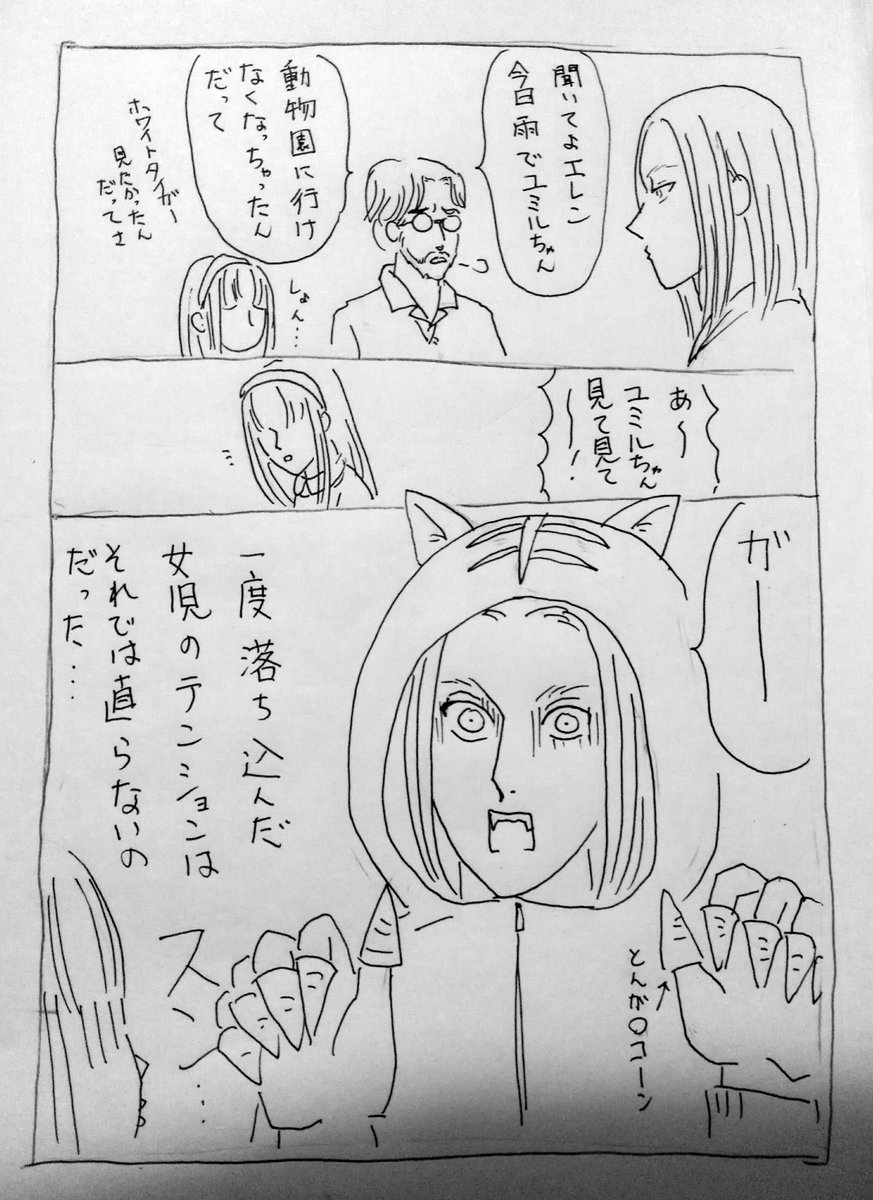 聞いてよエレン
今日雨でユミルちゃん
動物園に行け
なくなっちゃったん
だって
ホワイトタイガー
見たかったん
だってさ
しょん…
あ〜
ユミルちゃん
見て見て
〜!
がー
一度落ち込んだ
女児のテンションは
それでは直らないの
だった…
とんが〇コーン
スン…